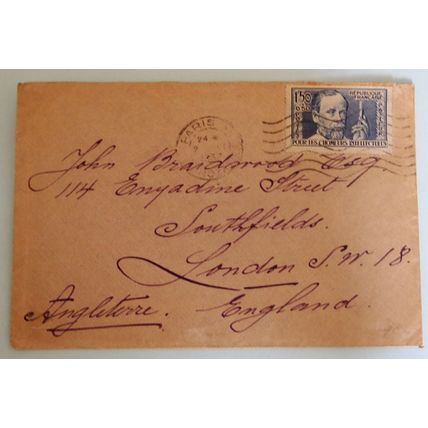 PARIS
24
1F50
+50c
RÉPUBLIQUE
FRANÇAISE
POUR LES CHÔMEURS INTELLECTUELS
John Braidwood Esq.
114 Engadine Street
Southfields.
London S.W. 18.
Angleterre. England.